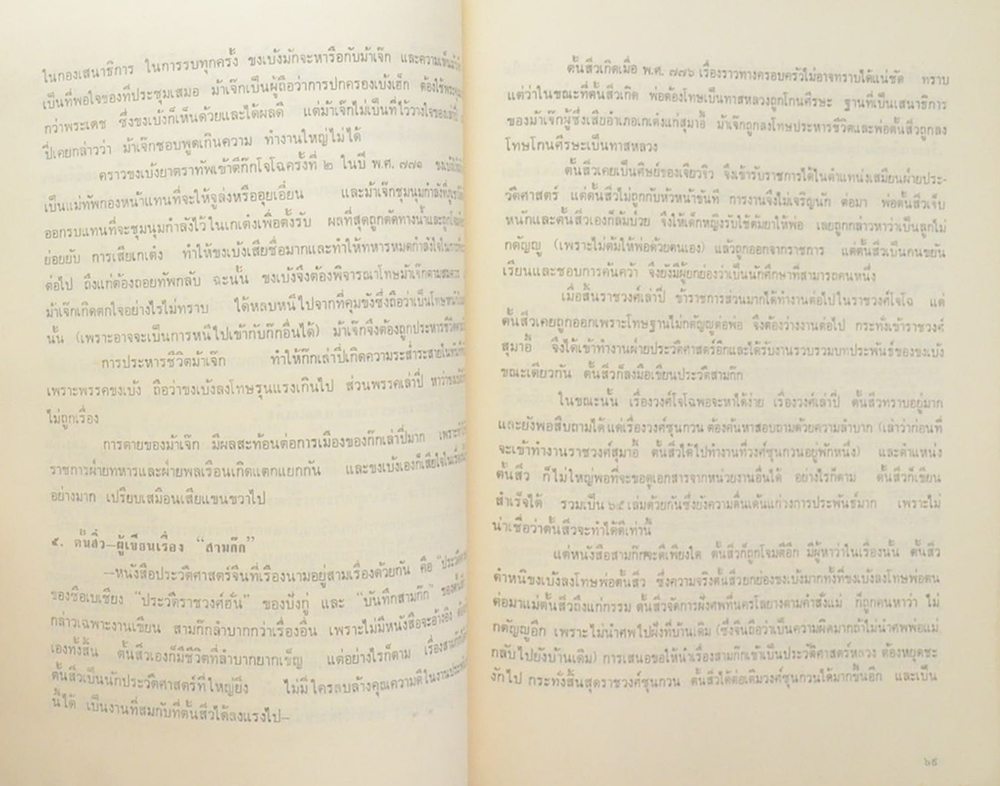 ในกองเสนาธิการ ในการรบทุกครั้ง ขงเบ้งมักจะหารือกับม้าเจ๊ก และความเห็น
เป็นที่พอใจของที่ประชุมเสมอ ม้าเจ๊กเป็นผู้ถือว่าการปกครองเบ้งเฮ็ก ต้องใช้
กว่าพระเดช ซึ่งขงเบ้งก็เห็นด้วยและได้ผลดี แต่ม้าเจ๊กไม่เป็นที่ไว้วางใจของเล่าปี่
ปี่เคยกล่าวว่า ม้าเจ๊กชอบพูดเกินความ ทำงานใหญ่ไม่ได้
คราวขงเบ้งยาตราทัพเข้าตีก๊กโจโฉครั้งที่ ๒ ในปี พ.ศ. ๗๗๑
เป็นแม่ทัพกองหน้าแทนที่จะให้จูล่งหรืออุยเอี๋ยน และม้าเจ๊กชุมนุมกำลัง
ออกรบแทนที่จะชุมนุมกำลังไว้ในเกเต๋งเพื่อตั้งรับ ผลที่สุดถูกตัดทางน้ำและถูก
ย่อยยับ การเสียเกเต๋ง ทำให้ขงเบ้งเสียชื่อมากและทำให้ทหารหมดกำลังใจ
ต่อไป ถึงแก่ต้องถอยทัพกลับ ฉะนั้น ขงเบ้งจึงต้องพิจารณาโทษม้าเจ๊ก
ม้าเจ๊กเกิดตกใจอย่างไรไม่ทราบ ได้หลบหนีไปจากที่คุมขังซึ่งถือว่าเป็นโทษ
นั้น (เพราะอาจจะเป็นการหนีไปเข้ากับก๊กอื่นได้) ม้าเจ๊กจึงต้องถูกประหารชีวิต
การประหารชีวิตม้าเจ๊ก ทำให้ก๊กเล่าปี่เกิดความระส่ำระสาย
เพราะพรรคขงเบ้ง ถือว่าขงเบ้งลงโทษรุนแรงเกินไป ส่วนพรรคเล่าปี่ หาว่า
ไม่ถูกเรื่อง
การตายของม้าเจ๊ก มีผลสะท้อนต่อการเมืองของก๊กเล่าปี่มาก
ราชการฝ่ายทหารและฝ่ายพลเรือนเกิดแตกแยกกัน และขงเบ้งเองก็เสียใจ
อย่างมาก เปรียบเสมือนเสียแขนขวาไป
๕. ตั้นสิ่ว—ผู้เขียนเรื่อง “สามก๊ก”
—หนังสือประวัติศาสตร์จีนที่เรืองนามอยู่สามเรื่องด้วยกัน คือ
ของซือเบเชียง “ประวัติราชวงศ์ฮั่น” ของปังกู่ และ “บันทึกสามก๊ก”
กล่าวเฉพาะงานเขียน สามก๊กลำบากกว่าเรื่องอื่น เพราะไม่มีหนังสือจะอ้างอิง
เองทั้งสิ้น ตั้นสิ่วเองก็มีชีวิตที่ลำบากยากเข็ญ แต่อย่างไรก็ตาม
ตั้นสิ่วเป็นนักประวัติศาสตร์ที่ใหญ่ยิ่ง ไม่มีใครลบล้างคุณความดีในงาน
นี้ได้ เป็นงานที่สมกับที่ตั้นสิ่วได้ลงแรงไป—
ตั้นสิ่วเกิดเมื่อ พ.ศ. ๗๗๖ เรื่องราวทางครอบครัวไม่อาจทราบได้แน่ชัด ทราบ
แต่ว่าในขณะที่ตั้นสิ่วเกิด พ่อต้องโทษเป็นทาสหลวงถูกโกนศีรษะ ฐานที่เป็นเสนาธิการ
ของม้าเจ๊กผู้ซึ่งเสียอำเภอเกเต๋งแก่สุมาอี้ ม้าเจ๊กถูกลงโทษประหารชีวิตและพ่อตั้นสิ่วถูกลง
โทษโกนศีรษะเป็นทาสหลวง
ตั้นสิ่วเคยเป็นศิษย์ของเจียวจิว จึงเข้ารับราชการได้ในตำแหน่งเสมียนฝ่ายประ-
วัติศาสตร์ แต่ตั้นสิ่วไม่ถูกกับหัวหน้าขันที การงานจึงไม่เจริญนัก ต่อมา พ่อตั้นสิ่วเจ็บ
หนักและตั้นสิ่วเองก็ล้มป่วย จึงให้เด็กหญิงรับใช้ต้มยาให้พ่อ เลยถูกกล่าวหาว่าเป็นลูกไม่
กตัญญู (เพราะไม่ต้มให้พ่อด้วยตนเอง) แล้วถูกออกจากราชการ แต่ตั้นสิ่วเป็นคนขยัน
เรียนและชอบการค้นคว้า จึงยังมีผู้ยกย่องว่าเป็นนักศึกษาที่สามารถคนหนึ่ง
เมื่อสิ้นราชวงศ์เล่าปี่ ข้าราชการส่วนมากได้ทำงานต่อไปในราชวงศ์โจโฉ แต่
ตั้นสิ่วเคยถูกออกเพราะโทษฐานไม่กตัญญูต่อพ่อ จึงต้องว่างงานต่อไป กระทั่งเข้าราชวงศ์
สุมาอี้ จึงได้เข้าทำงานฝ่ายประวัติศาสตร์อีกและได้รับงานรวบรวมบทประพันธ์ของขงเบ้ง
ขณะเดียวกัน ตั้นสิ่วก็ลงมือเขียนประวัติสามก๊ก
ในขณะนั้น เรื่องวงศ์โจโฉพอจะหาได้ง่าย เรื่องวงศ์เล่าปี่ ตั้นสิ่วทราบอยู่มาก
และยังพอสืบถามได้ แต่เรื่องวงศ์ซุนกวน ต้องค้นหาสอบถามด้วยความลำบาก (เล่าว่าก่อนที่
จะเข้าทำงานราชวงศ์สุมาอี้ ตั้นสิ่วได้ไปทำงานที่วงศ์ซุนกวนอยู่พักหนึ่ง) และตำแหน่ง
ตั้นสิ่ว ก็ไม่ใหญ่พอที่จะขอดูเอกสารจากหน่วยงานอื่นได้ อย่างไรก็ตาม ตั้นสิ่วก็เขียน
สำเร็จได้ รวมเป็น ๖๕ เล่มด้วยกันซึ่งยังความตื่นเต้นแก่วงการประพันธ์มาก เพราะไม่
น่าเชื่อว่าตั้นสิ่วจะทำได้ดีเท่านี้
แต่หนังสือสามก๊กจะดีเพียงใด ตั้นสิ่วก็ถูกโจมตีอีก มีผู้หาว่าในเรื่องนั้น ตั้นสิ่ว
ตำหนิขงเบ้งลงโทษพ่อตั้นสิ่ว ซึ่งความจริงตั้นสิ่วยกย่องขงเบ้งมากทั้งที่ขงเบ้งลงโทษพ่อตน
ต่อมาแม่ตั้นสิ่วถึงแก่กรรม ตั้นสิ่วจัดการฝังศพที่นครโลยางตามคำสั่งแม่ ก็ถูกคนหาว่า ไม่
กตัญญูอีก เพราะไม่นำศพไปฝังที่บ้านเดิม (ซึ่งจีนถือว่าเป็นความผิดมากถ้าไม่นำศพพ่อแม่
กลับไปยังบ้านเดิม) การเสนอขอให้นำเรื่องสามก๊กเข้าเป็นประวัติศาสตร์หลวง ต้องหยุดชะ
งักไป กระทั่งสิ้นสุดราชวงศ์ซุนกวน ตั้นสิ่วได้ต่อเติมวงศ์ซุนกวนได้มากขึ้นอีก และเป็น
๖๙